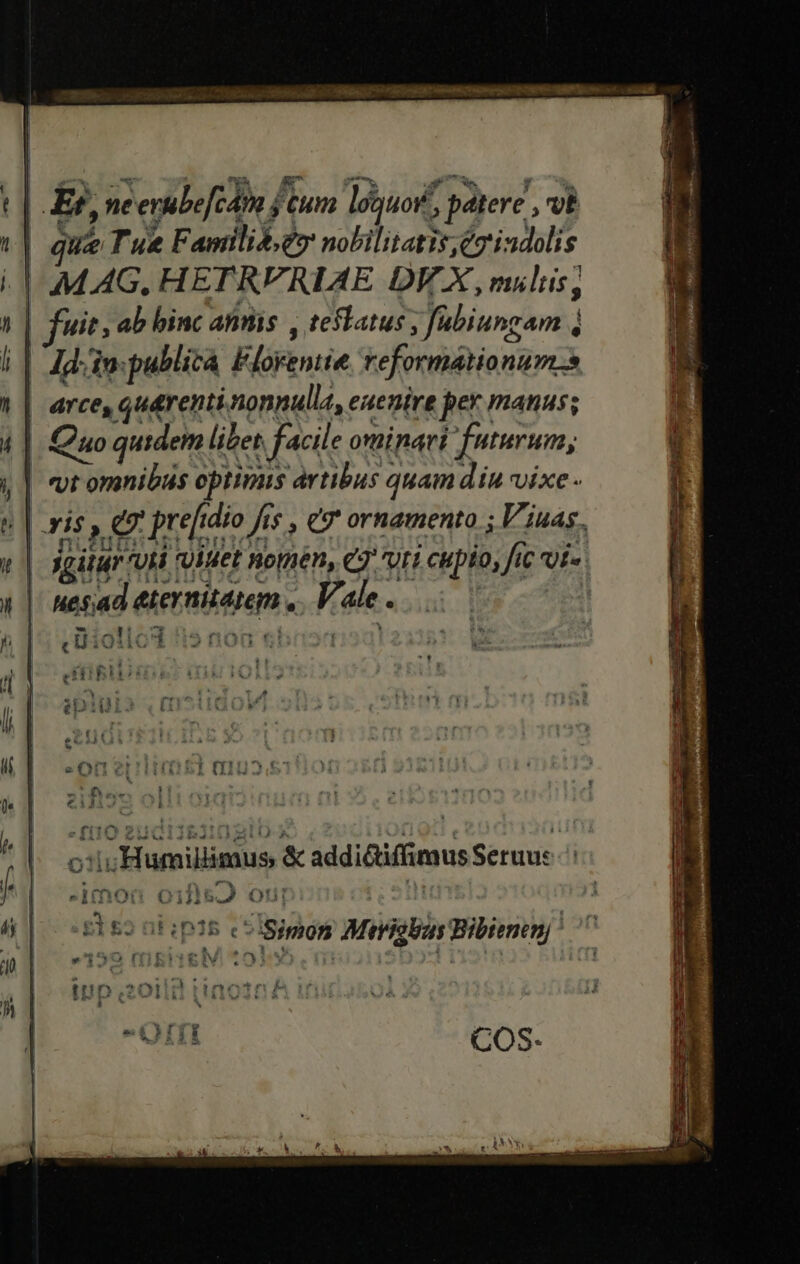 Et, ne erubeſcam, cum loquor, patere, vt
quæ Tuæ Familiæ, & nobilitatis, & indolis
MAG. HETRVRIAE DVX, multis,
fuit, ab hinc annis, teſtatus, ſubiungam;
Id in publica Florentiæ reformationum
arce, quærenti nonnulla, euenire per manus;
Quo quidem libet facile ominari futurum,
vt omnibus optimis artibus quam diu vixe-
ris, & preſidio ſis, & ornamento; Viuas
igitur vti viuet nomen, & vti cupio, ſic vi-
ues ad æternitatem. Vale.
Humillimus, & addictiſſimus Seruus
Simon Bibienenſ
COS-